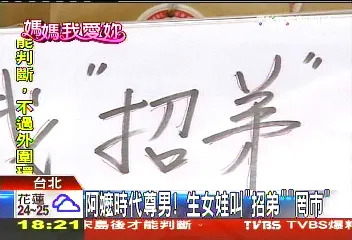 媽媽我愛妳
能判斷，不過外圍環
"招弟"
台北
阿嬤時代尊男! 生女娃叫"招弟""罔市"
花蓮
24-25
18:21
島後才能判斷
TVBS